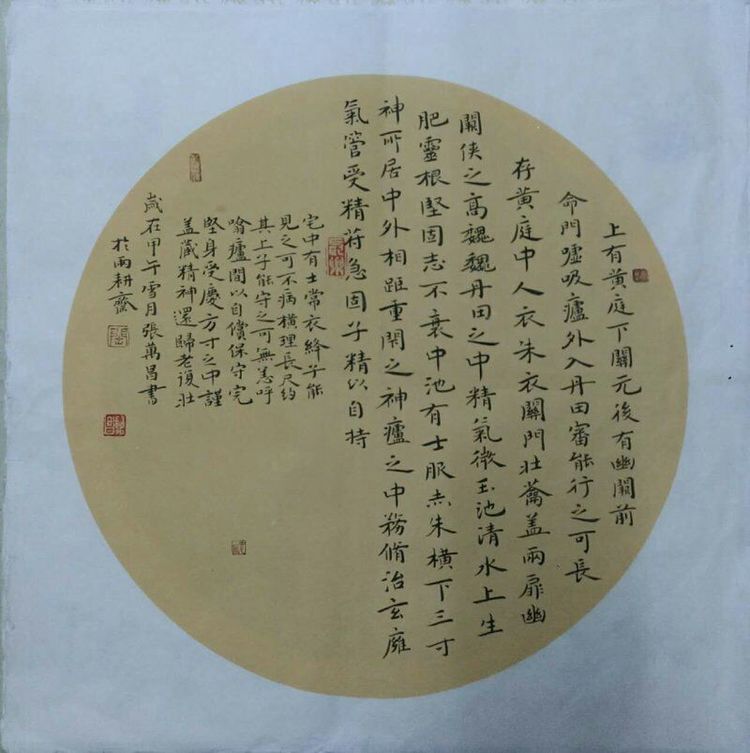 上有黄庭下關元後有幽闕前
命門噓吸廬外入丹田審能行之可長
存黄庭中人衣朱衣關門壯蘥盖兩扉幽
闕俠之高魏魏丹田之中精氣微玉池清水上生
肥靈根堅固志不衰中池有士服赤朱橫下三寸
神所居中外相距重閇之神廬之中務脩治玄㢕
氣管受精符急固子精以自持
宅中有士常衣絳子能
見之可不病橫理長尺約
其上子能守之可無恙呼
噏廬間以自償保守完
堅身受慶方寸之中謹
盖藏精神還歸老復壯
歲在甲午雪月張萬昌書
於雨耕齋